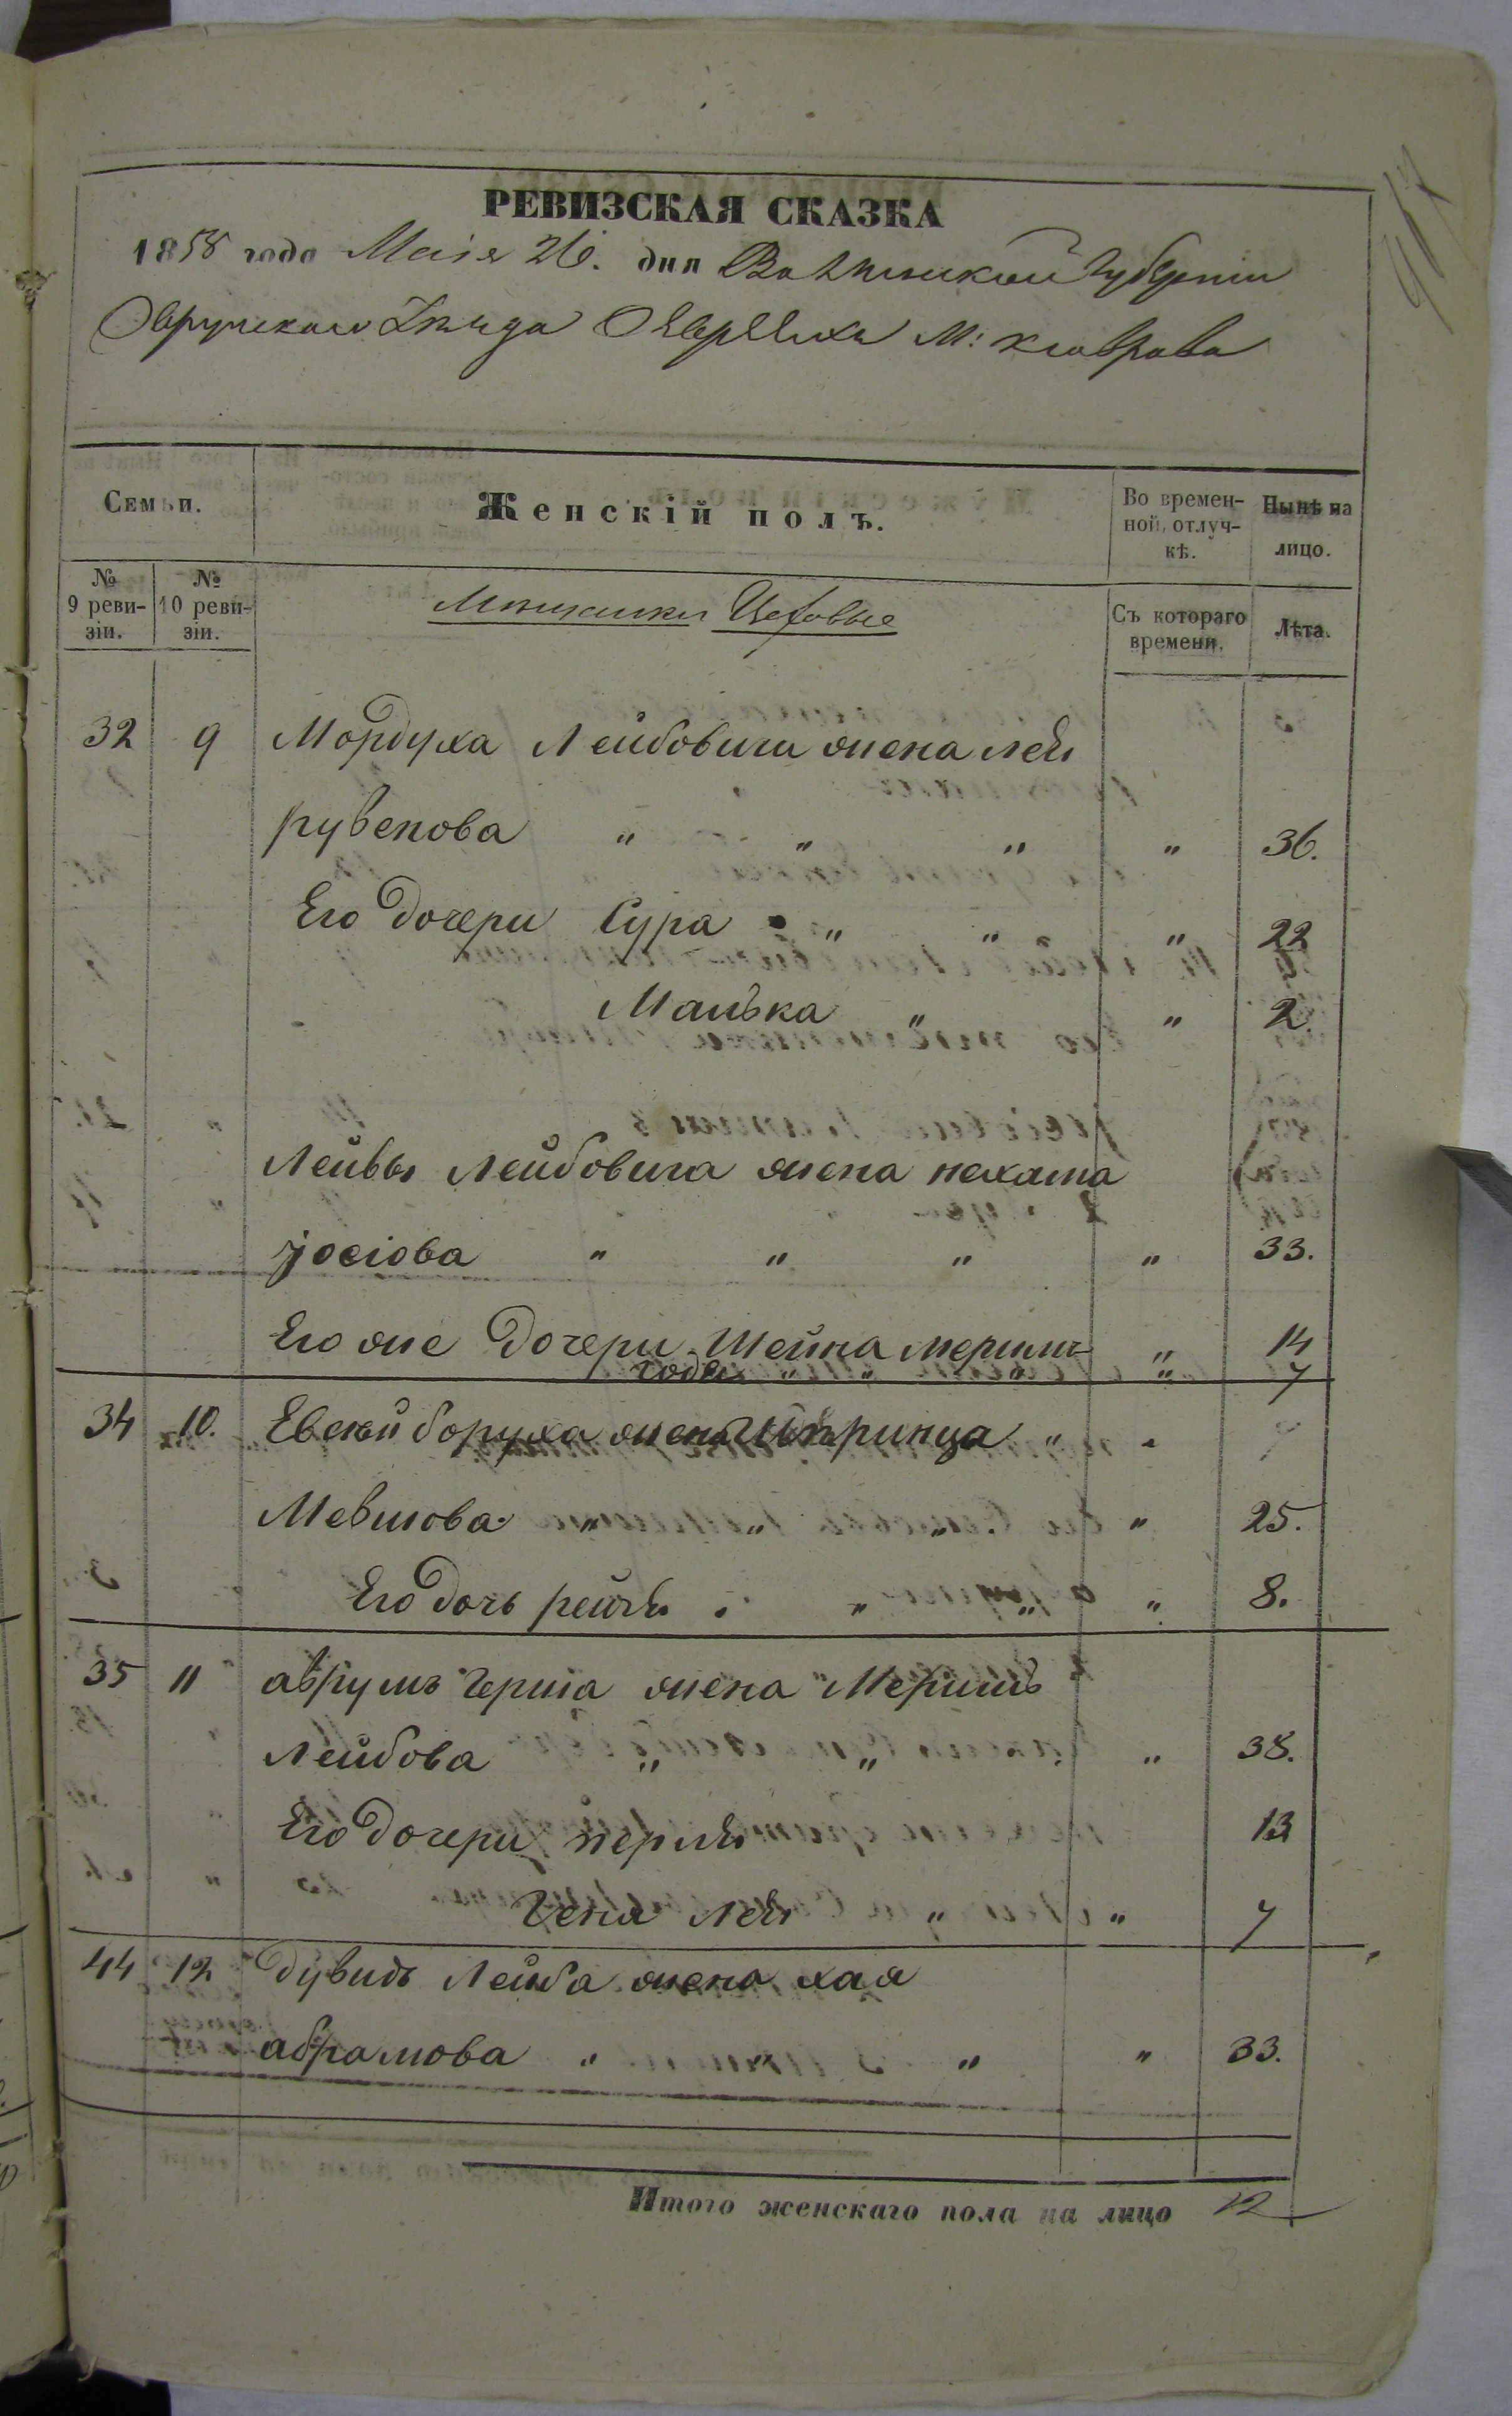 РЕВИЗСКАЯ СКАЗКА
1858 года Маія 26. дня Волынской Губерніи
Овручскаго Уѣзда О Евреяхъ М:
Семьи.
Женскій полъ.
Во времен-
ной отлуч-
кѣ.
Нынѣ на
лицо.
№
9 реви-
зіи.
№
10 реви-
зіи.
Мѣщанки Цеховые
Съ котораго
времени.
Лѣта.
32 9 Мордуха Лейбовича жена лея
рувенова " " " " 36.
Его дочери Сура " " " 22
Манька " " 2.
Лейвы Лейбовича жена нехама
јосіова " " " " 33.
Его же дочери Шейна " 14
" " " " 7
34 10. боруха жена Шпринца " "
" " " " 25.
Его дочь " " " 8.
35 11 аврумъ Герша жена
Лейбова " " " 38.
Его дочери перля 13
Геня Лея " " 7
44 12 дувидъ Лейба жена хая
абрамова " " " 33.
Итого женскаго пола на лицо 12